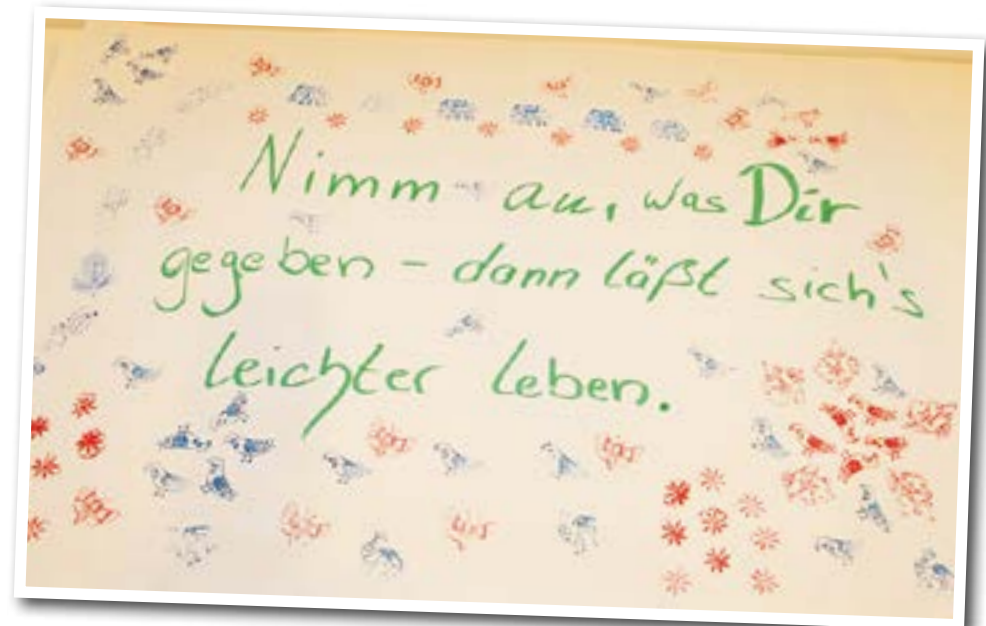 Nimm an, was Dir
gegeben - dann läßt sich's
leichter leben.